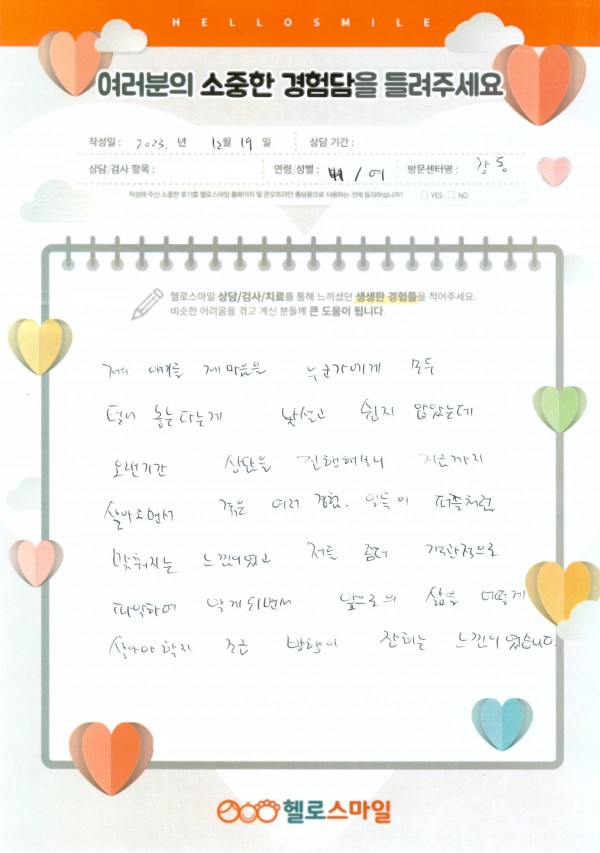 HELLOSMILE
여러분의 소중한 경험담을 들려주세요
작성일 : 2023. 년 12월 19 일 상담 기간 :
상담/검사 항목 : 연령/성별 : / 여 방문센터명 : 강동
작성해 주신 소중한 후기를 헬로스마일 홈페이지 및 온오프라인 홍보용으로 사용하는 것에 동의하십니까? YES NO
헬로스마일 상담/검사/치료를 통해 느끼셨던 생생한 경험들을 적어주세요.
비슷한 어려움을 겪고 계신 분들께 큰 도움이 됩니다.
저의 얘기를 제 마음을 누군가에게 모두
털어 놓는다는게 낯설고 쉽지 않았는데
오랜기간 상담을 진행해보니 지금까지
살아오면서 겪은 여러 경험, 일들이 퍼즐처럼
맞춰지는 느낌이였고 저를 좀더 객관적으로
파악하며 알게되면서 앞으로의 삶을 어떻게
살아야 할지 조금 방향이 잡히는 느낌이 였습니다.
헬로스마일